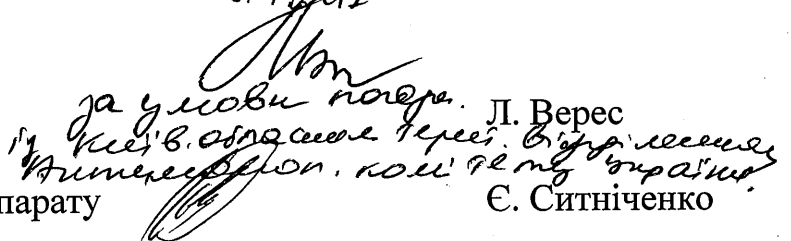 за умови погодж.
Л. Верес
із Київ. обласним терит. відділенням
Антимонопол. комітету України.
парату
Є. Ситніченко